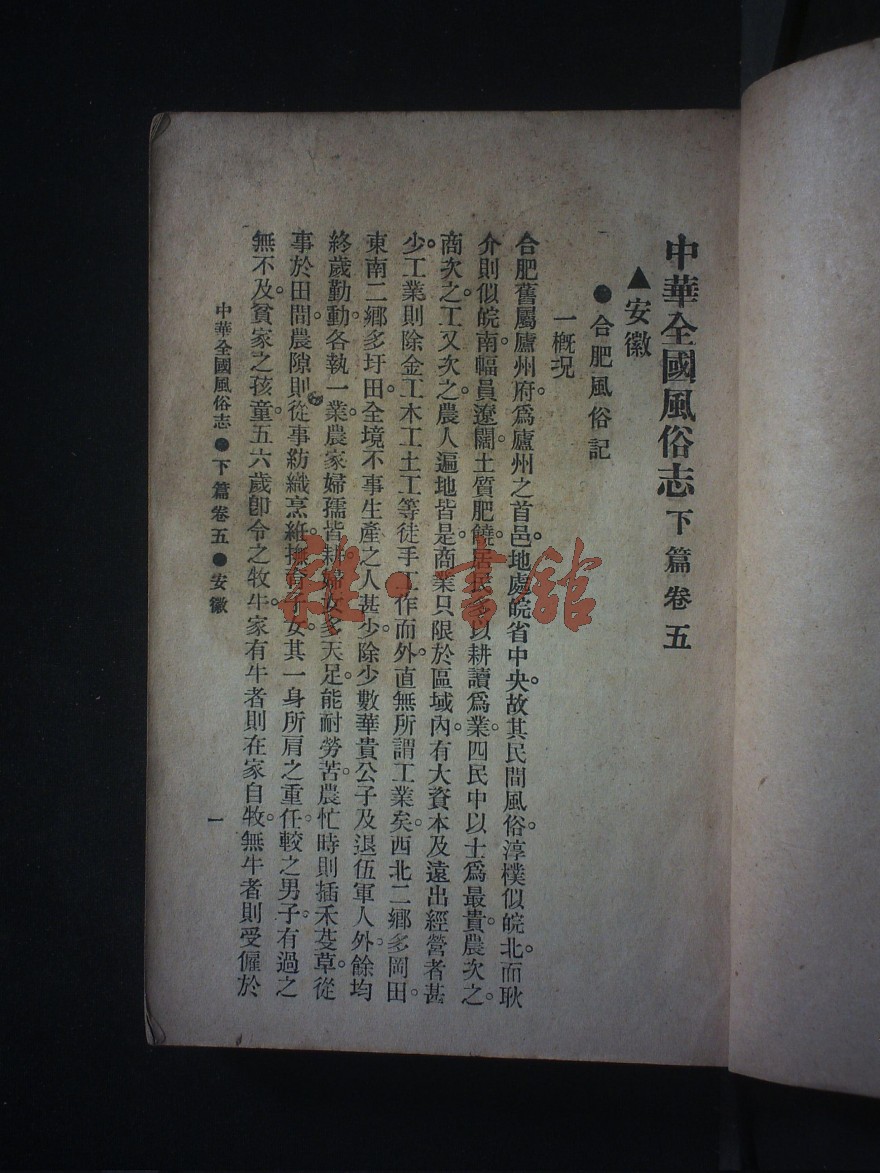 中華全國風俗志 下篇卷五
▲安徽
●合肥風俗記
一概況
合肥舊屬廬州府。爲廬州之首邑。地處皖省中央。故其民間風俗。淳樸似皖北。而耿
介則似皖南。幅員遼闊。土質肥饒。居民多以耕讀爲業。四民中以士爲最貴。農次之。
商次之。工又次之。農人遍地皆是。商業只限於區域內。有大資本及遠出經營者甚
少。工業則除金工木工土工等徒手工作而外。直無所謂工業矣。西北二鄉多岡田。
東南二鄉多圩田。全境不事生產之人甚少。除少數華貴公子及退伍軍人外。餘均
終歲勤動。各執一業。農家婦孺皆耕。婦女多天足。能耐勞苦。農忙時則插禾芟草。從
事於田間。農隙則從事紡織烹紝。撫育子女。其一身所肩之重任。較之男子。有過之
無不及。貧家之孩童。五六歲卽令之牧牛。家有牛者則在家自牧。無牛者則受僱於
中華全國風俗志●下篇卷五●安徽
一
雜·書館